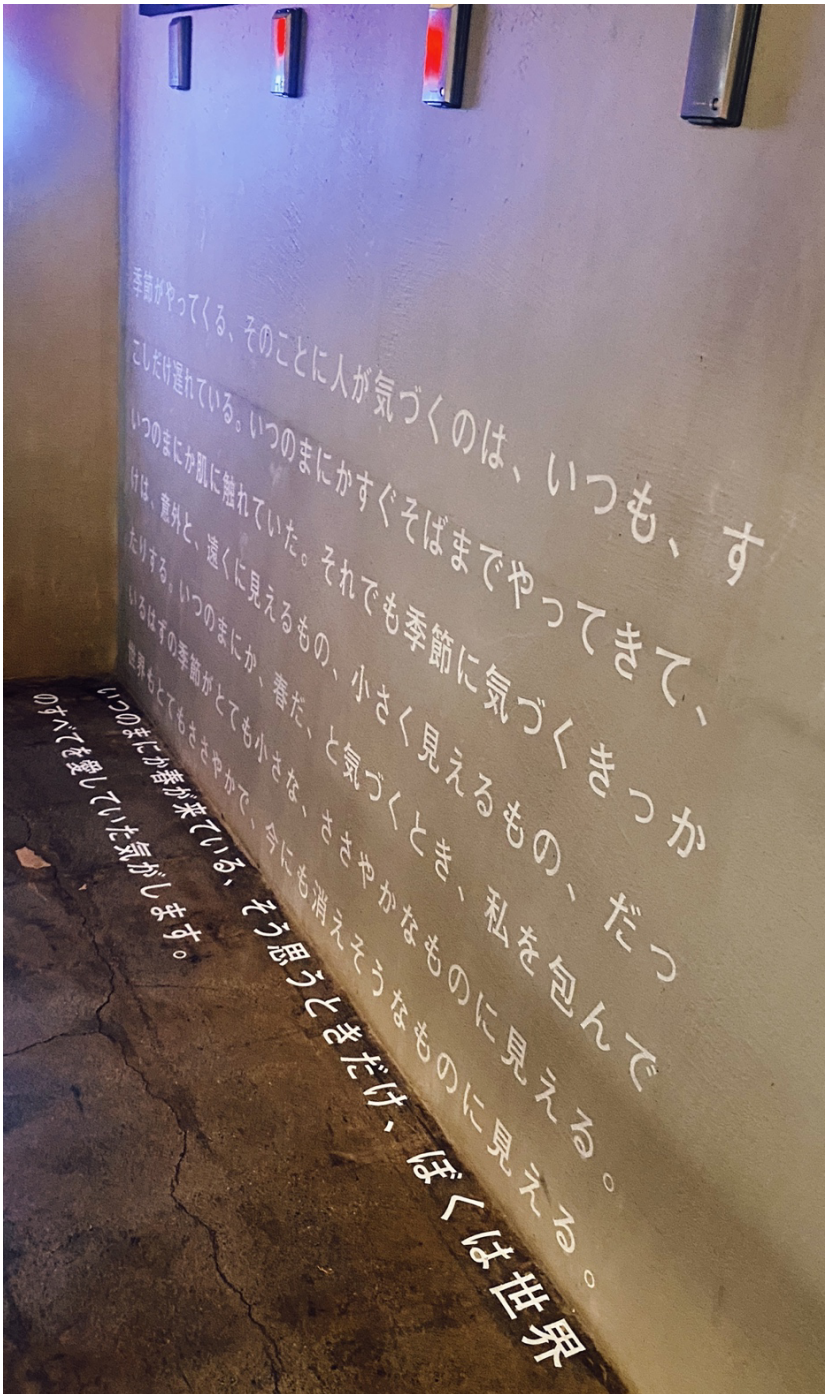 季節がやってくる、そのことに人が気づくのは、いつも、す
こしだけ遅れている。いつのまにかすぐそばまでやってきて、
いつのまにか肌に触れていた。それでも季節に気づくきっか
けは、意外と、遠くに見えるもの、小さく見えるもの、だっ
たりする。いつのまにか、春だ、と気づくとき、私を包んで
いるはずの季節がとても小さな、ささやかなものに見える。
世界もとてもささやかで、今にも消えそうなものに見える。
いつのまにか春が来ている、そう思うときだけ、ぼくは世界
のすべてを愛していた気がします。